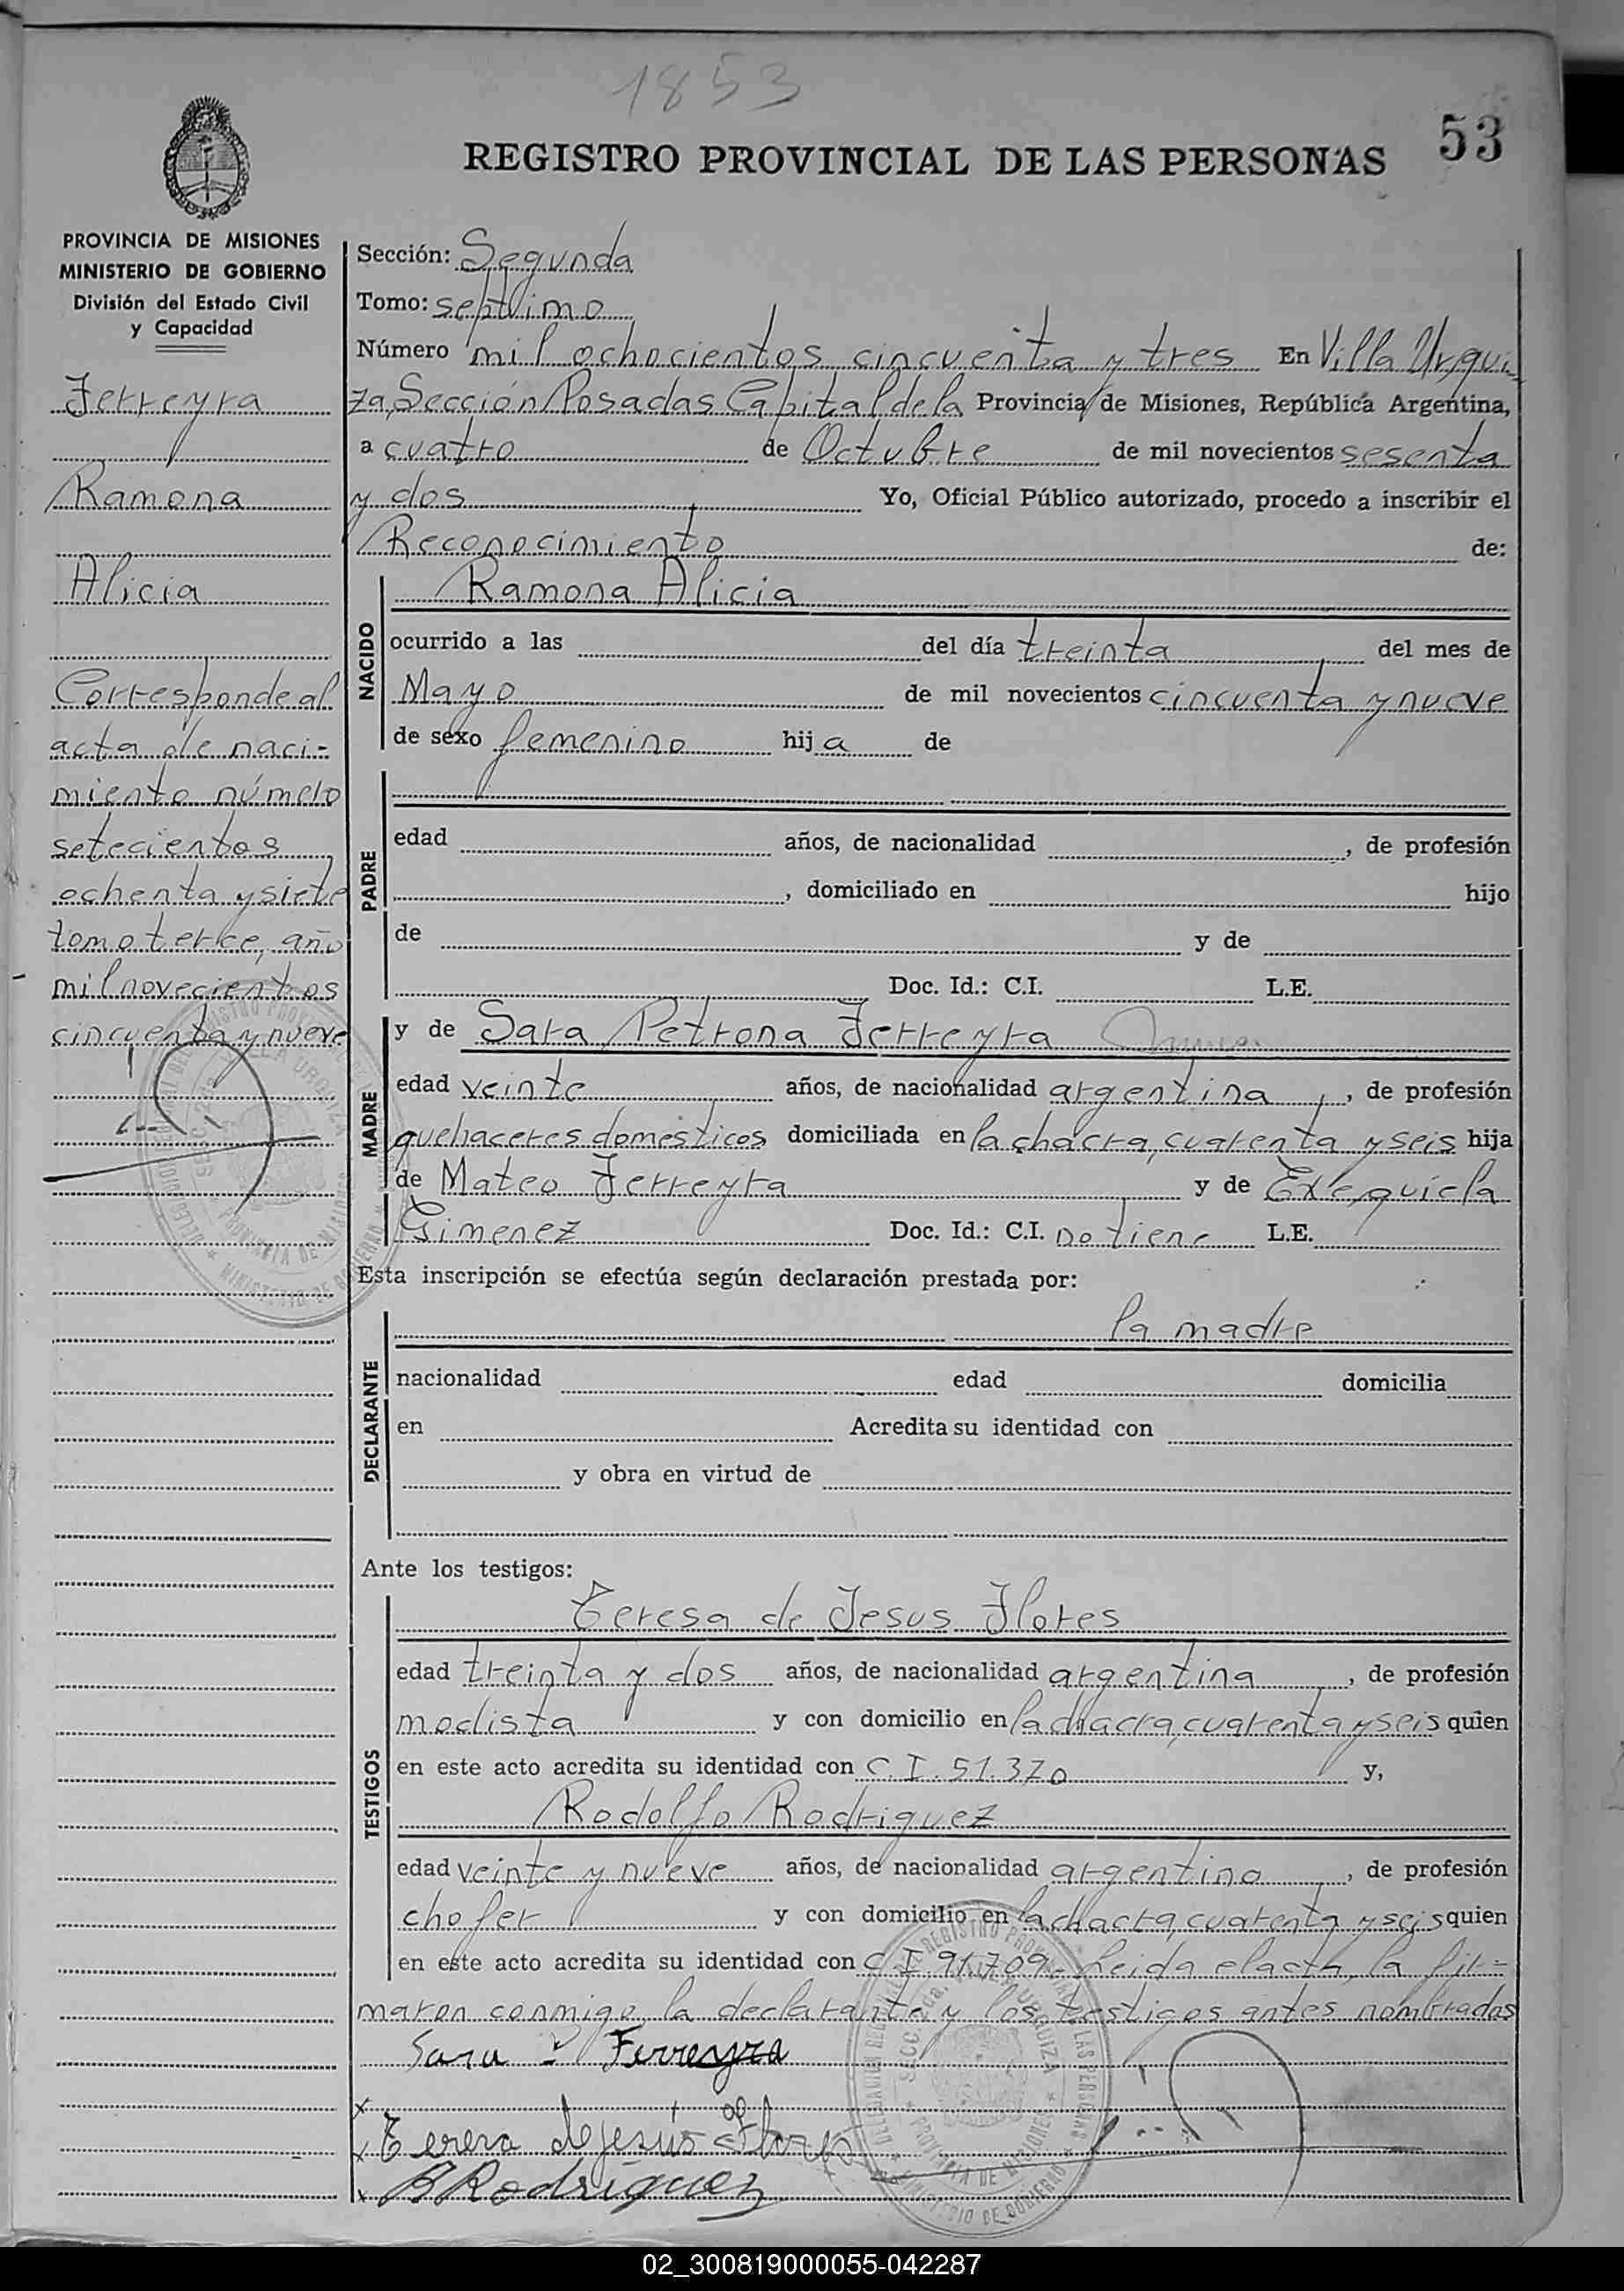 1853
53
REGISTRO PROVINCIAL DE LAS PERSONAS
PROVINCIA DE MISIONES
MINISTERIO DE GOBIERNO
División del Estado Civil
y Capacidad
Ferreyra
Ramona
Alicia
Corresponde al
acta de naci-
miento número
setecientos
ochenta y siete
tomo terce, año
mil novecientos
cincuenta y nueve
Sección: Segunda
Tomo: septimo
Número mil ochocientos cincuenta y tres En Villa Urqui-
za, Sección Posadas Capital de la Provincia de Misiones, República Argentina,
a cuatro de Octubre de mil novecientos sesenta
y dos Yo, Oficial Público autorizado, procedo a inscribir el
Reconocimiento de:
NACIDO
Ramona Alicia
ocurrido a las del día treinta del mes de
Mayo de mil novecientos cincuenta y nueve
de sexo femenino hija de
PADRE
edad años, de nacionalidad , de profesión
, domiciliado en hijo
de y de
Doc. Id.: C.I. L.E.
MADRE
y de Sara Petrona Ferreyra
edad veinte años, de nacionalidad argentina, de profesión
quehaceres domesticos domiciliada en la chacra, cuarenta y seis hija
de Mateo Ferreyra y de Exequiela
Gimenez Doc. Id.: C.I. no tiene L.E.
Esta inscripción se efectúa según declaración prestada por:
DECLARANTE
la madre
nacionalidad edad domicilia
en Acredita su identidad con
y obra en virtud de
Ante los testigos:
TESTIGOS
Teresa de Jesus Flores
edad treinta y dos años, de nacionalidad argentina, de profesión
modista y con domicilio en la chacra, cuarenta y seis quien
en este acto acredita su identidad con C.I. 51.370 y,
Rodolfo Rodriguez
edad veinte y nueve años, de nacionalidad argentino, de profesión
chofer y con domicilio en la chacra, cuarenta y seis quien
en este acto acredita su identidad con C.I. 91.709.- Leida el acta, la fir-
maron conmigo, la declarante y los testigos antes nombrados
Sara P Ferreyra
Teresa de jesús Flores
Rodriguez
02_300819000055-042287